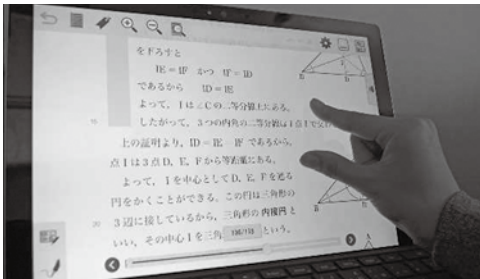 を下ろすと
IE = IF かつ IF = ID
であるから ID = IE
よって，Iは∠Cの二等分線上にある。
15 したがって，3つの内角の二等分線は1点Iで交わ
上の証明より，ID = IE = IFであるから，
点Iは3点D，E，Fから等距離にある。
よって，Iを中心としてD，E，Fを通る
円をかくことができる。この円は三角形の
20 3辺に接しているから，三角形の内接円と
いい，その中心Iを三角 という。